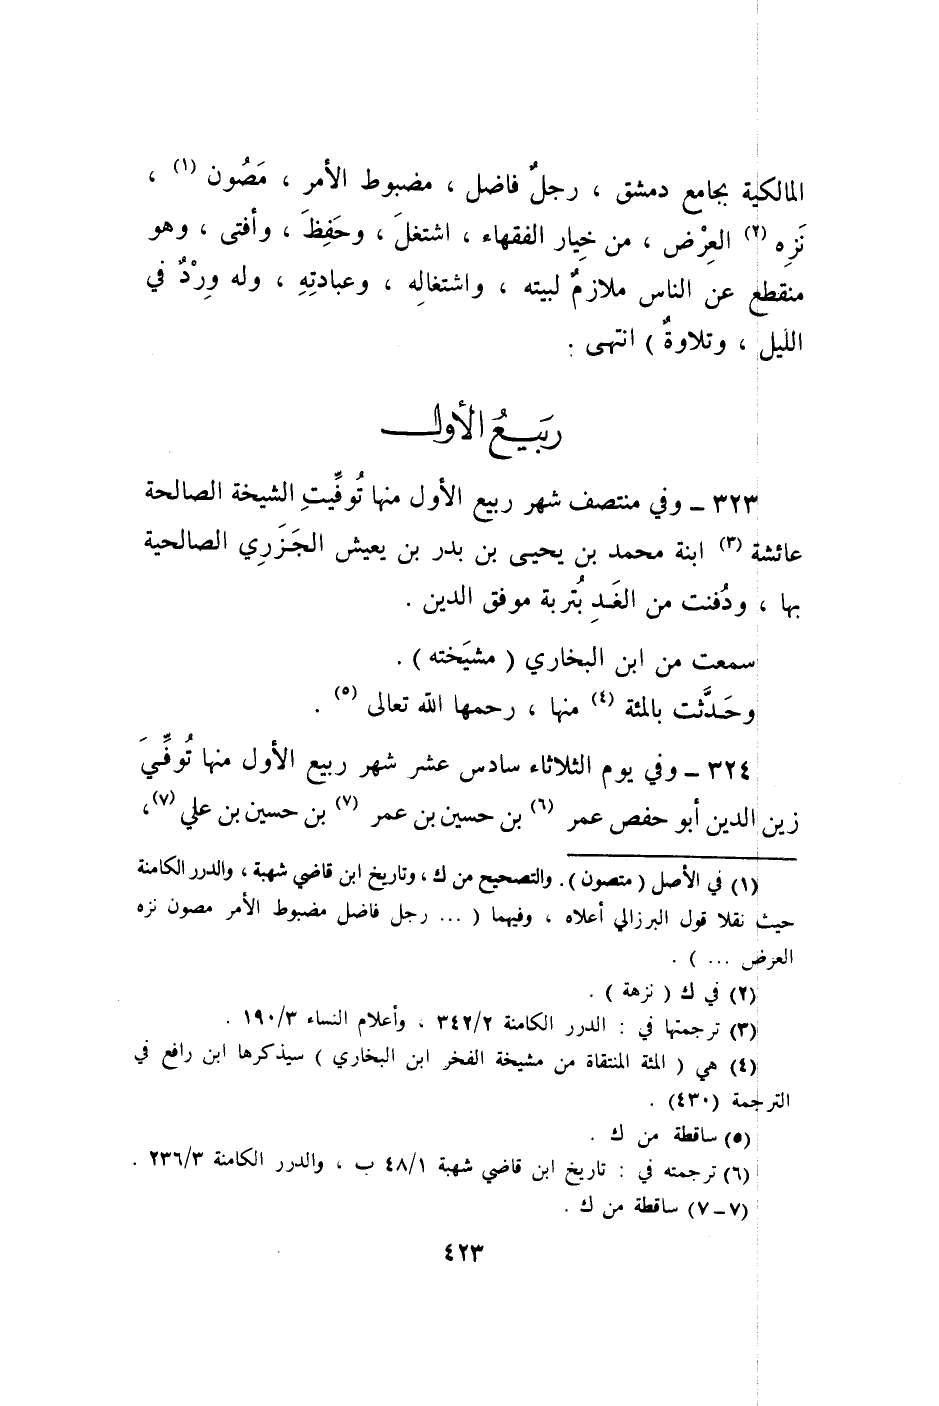 المالكية بجامع دمشق ، رجلٌ فاضل ، مضبوط الأمر ، مَصُون (١) ،
نَزِه (٢) العِرْض ، من خِيار الفقهاء ، اشتغلَ ، وحَفِظَ ، وأفتى ، وهو
منقطع عن الناس ملازمٌ لبيته ، واشتغالِه ، وعبادتِهِ ، وله وِرْدٌ في
الليل ، وتلاوةٌ ) انتهى .
ربيعُ الأول
٣٢٣ ـ وفي منتصف شهر ربيع الأول منها تُوفِّيتِ الشيخة الصالحة
عائشة (٣) ابنة محمد بن يحيى بن بدر بن يعيش الجَزَرِي الصالحية
بها ، ودُفنت من الغَدِ بتُربة موفق الدين .
سمعت من ابن البخاري ( مشيَخته ) .
وحَدَّثت بالمئة (٤) منها ، رحمها الله تعالى (٥) .
٣٢٤ ـ وفي يوم الثلاثاء سادس عشر شهر ربيع الأول منها تُوفِّيَ
زين الدين أبو حفص عمر (٦) بن حسين بن عمر (٧) بن حسين بن علي (٧)،
(١) في الأصل ( متصون ). والتصحيح من ك ، وتاريخ ابن قاضي شهبة ، والدرر الكامنة
حيث نقلا قول البرزالي أعلاه ، وفيهما ( ... رجل فاضل مضبوط الأمر مصون نزه
العرض ... ) .
(٢) في ك ( نزهة ) .
(٣) ترجمتها في : الدرر الكامنة ٣٤٢/٢ ، وأعلام النساء ١٩٠/٣ .
(٤) هي ( المئة المنتقاة من مشيخة الفخر ابن البخاري ) سيذكرها ابن رافع في
الترجمة (٤٣٠) .
(٥) ساقطة من ك .
(٦) ترجمته في : تاريخ ابن قاضي شهبة ٤٨/١ ب ، والدرر الكامنة ٢٣٦/٣ .
(٧ ـ ٧) ساقطة من ك .
٤٢٣